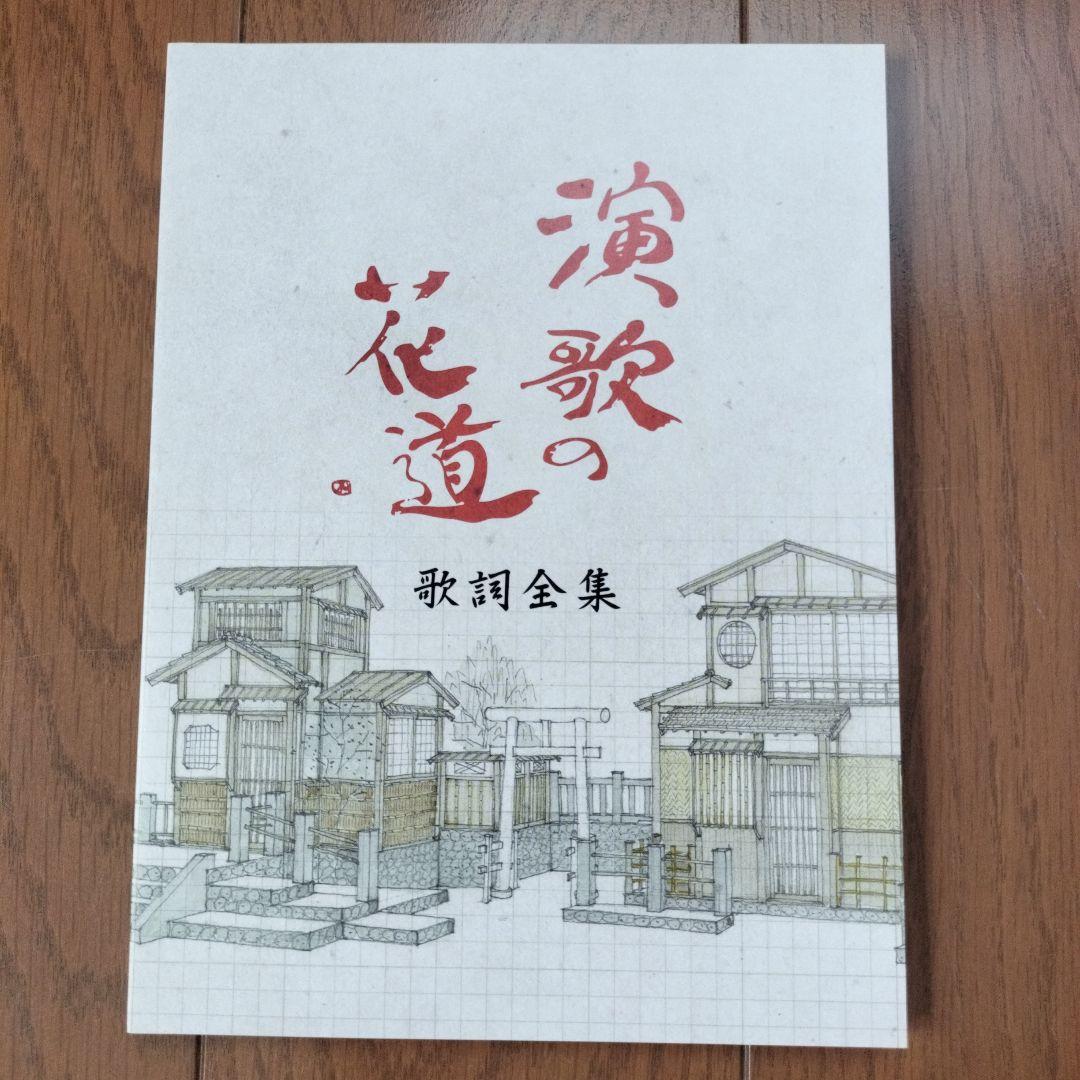 演歌の
花道
歌詞全集